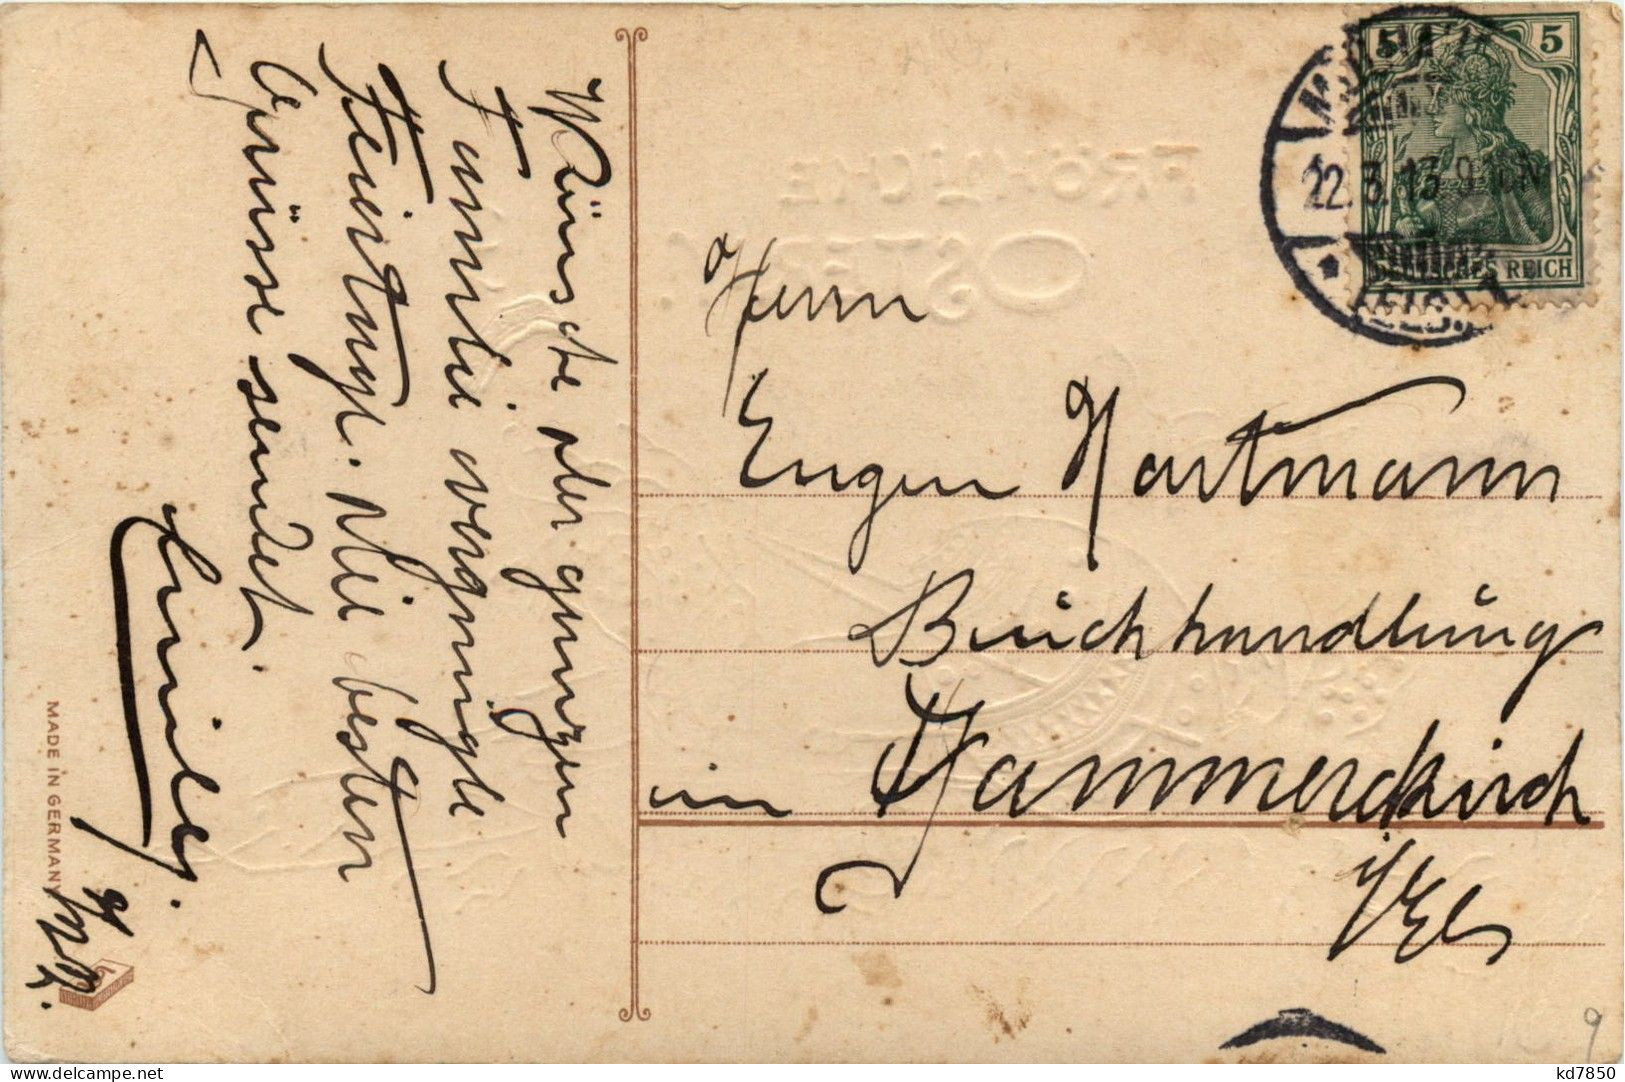 Wünsche der ganzen
Familie vergnügte
Feiertage. Die besten
Grüsse sendet
MADE IN GERMANY
FRÖHLICHE
OSTERN
5
5
DEUTSCHES REICH
22.3.13. 9-10N
Herrn
Eugen Hartmann
Buchhandlung
in Dammerkirch
i/Els
9
kd7850